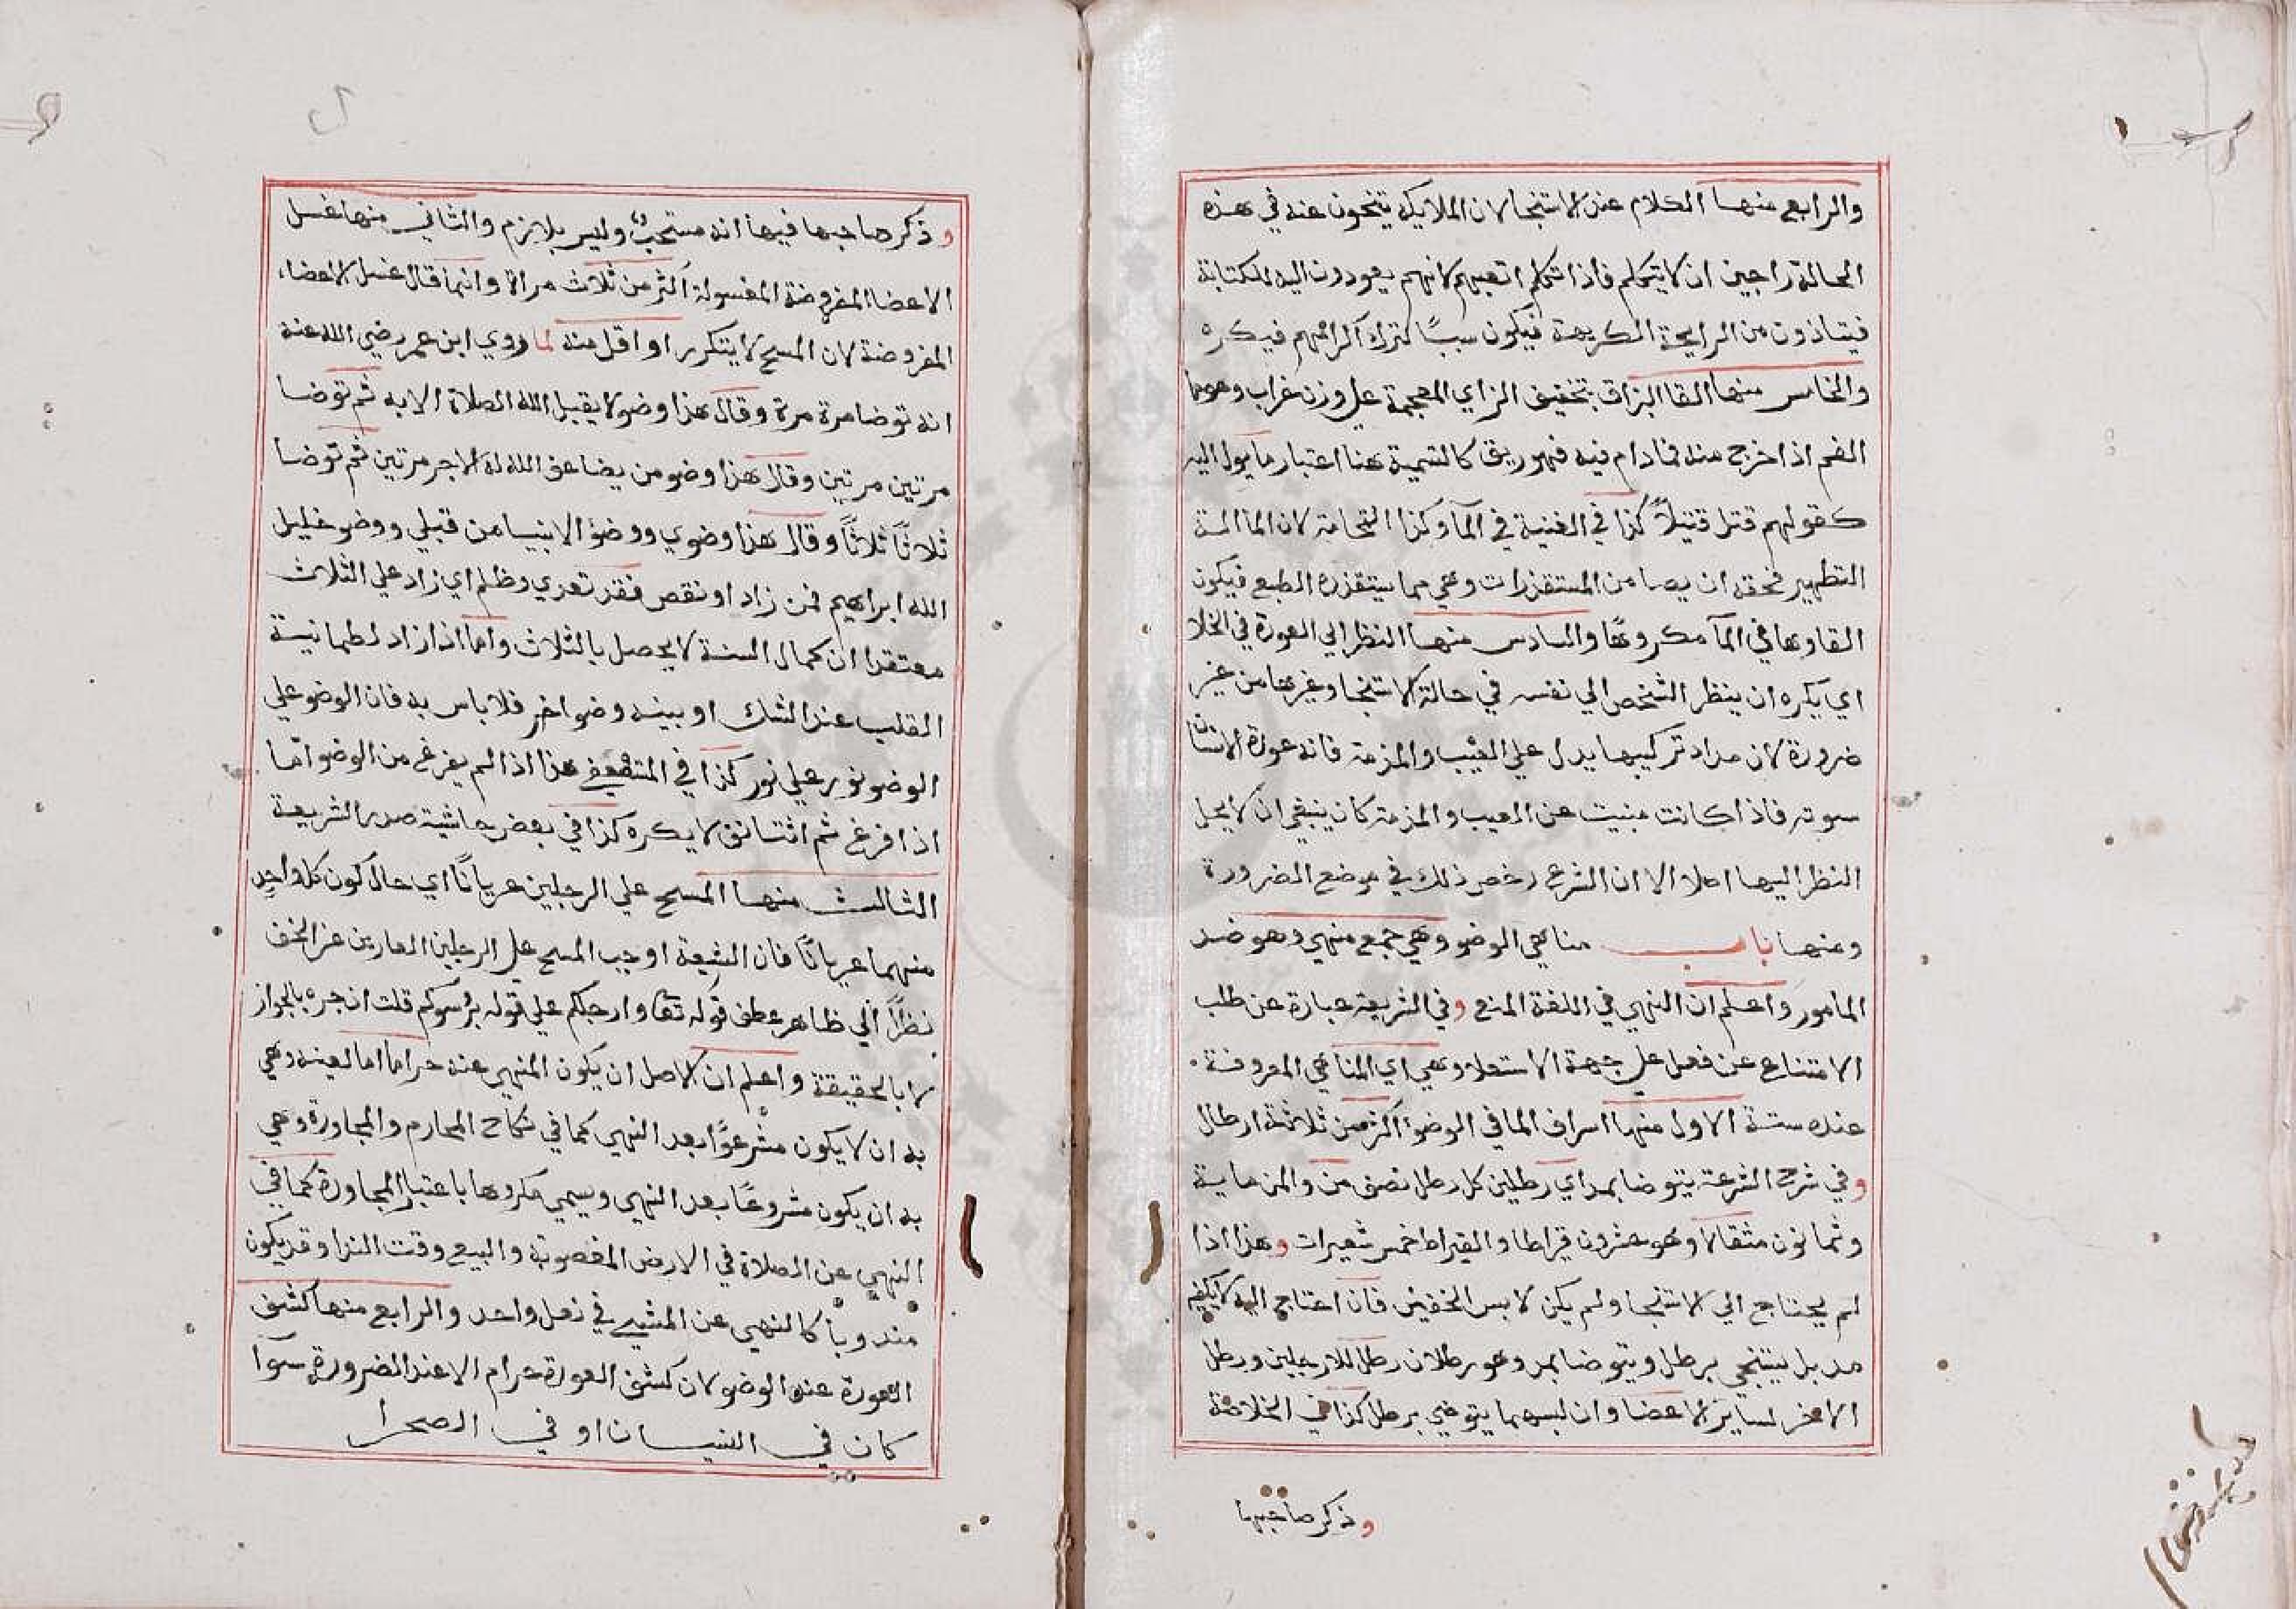 والرابع منها الكلام عند الاستنجا لان الملايكة يتنحون عنه في هذه
الحالة راجين ان لا يتكلم فاذا تكلم اتعبهم لانهم يعودون اليه للكتابة
فيتاذون من الرايحة الكريهة فيكون سببًا لترك اكرامهم فيكره
والخامس منها القا البزاق بتخفيف الزاي المعجمة علي وزن غراب وهو ما
الفم اذا خرج منه فما دام فيه فهو ريق كالتسمية هنا اعتبار ما يول اليه
كقولهم قتل قتيلاً كذا في الغنية في المآ وكذا النخامة لان الما المة
التطهير فحقه ان يصا من المستقذرات وهي مما يستقذره الطبع فيكون
القاوها في المآ مكروهًا والسادس منها النظر الي العورة في الخلا
اي يكره ان ينظر الشخص الي نفسه في حالة الاستنجا وغيرها من غير
ضرورة لان مراد تركيبها يدل علي العيب والمزمة فانه عورة الانسان
سوته فاذا كانت مبنيت عن العيب والمزمة كان ينبغي ان لا يحل
النظر اليها اصلا الا ان الشرع رخص ذلك في موضع الضرورة
ومنها باب مناهي الوضو وهي جمع منهي وهو ضد
المامور واعلم ان النهي في اللغة المنع وفي الشريعة عبارة عن طلب
الامتناع عن فعل علي جهة الاستعلا وهي اي المناهي المعروفة
عنده ستة الاول منها اسراف الما في الوضو اكثر من ثلاثة ارطال
وفي شرح الشرعة يتوضا بمد اي رطلين كل رطل نصف من والمن ماية
وثمانون مثقالا وهو عشرون قيراطا والقيراط خمس شعيرات وهذا اذا
لم يحتاج الي الاستنجا ولم يكن لابس الخفين فان احتاج اليه لا يكفيه
مد بل يستنجي برطل ويتوضا بمد وهو رطلان رطل للارجلين ورطل
الاخر لساير الاعضا وان لبسهما يتوضي برطل كذا في الخلاصة
وذكر صاحبها
وذكر صاحبها فيها انه مستحب وليس بلازم والثاني منها غسل
الاعضا المفروضة المغسولة اكثر من ثلاث مراة وانما قال غسل الاعضا
المفروضة لان المسح لا يتكرر او اقل منه لما روي ابن عمر رضي الله عنه
انه توضا مرة مرة وقال هذا وضو لا يقبل الله الصلاة الا به ثم توضا
مرتين مرتين وقال هذا وضو من يضاعف الله له الاجر مرتين ثم توضا
ثلاثًا ثلاثًا وقال هذا وضوي ووضؤ الانبيا من قبلي ووضو خليل
الله ابراهيم فمن زاد او نقص فقد تعدي وظلم اي زاد علي الثلاث
معتقدا ان كمال السنة لا يحصل بالثلاث واما اذا زاد لطمانيسة
القلب عند الشك او بينه وضو اخر فلا باس به فان الوضو علي
الوضو نور علي نور كذا في هذا اذا لم يفرغ من الوضو اما
اذا فرغ ثم لا يكره كذا في بعض حاشية صدر الشريعة
الثالث منها المسح علي الرجلين عريانًا اي حال كون كل واحد
منهما عريانًا فان الشيعة اوجب المسح علي الرجلين العارين عن الخف
نظرًا الي ظاهر عطف قوله تعا وارجلكم علي قوله برؤسوكم قلت ان جره بالجواز
لا بالحقيقة واعلم ان الاصل ان يكون المنهي عنه حراما اما لعينه وهي
به ان لا يكون مشرعوًا بعد النهي كما في نكاح المحارم والمجاورة وهي
به ان يكون مشروعًا بعد النهي ويسمي مكروها باعتبار المجاورة كما في
النهي عن الصلاة في الارض المغصوبة والبيع وقت الندا وقد يكون
مندوبًا كالنهي عن المشي في نعل واحد والرابع منها كشف
العورة عند الوضو لان كشف العورة حرام الا عند الضرورة سوآ
كان في البنيان او في الصحرا